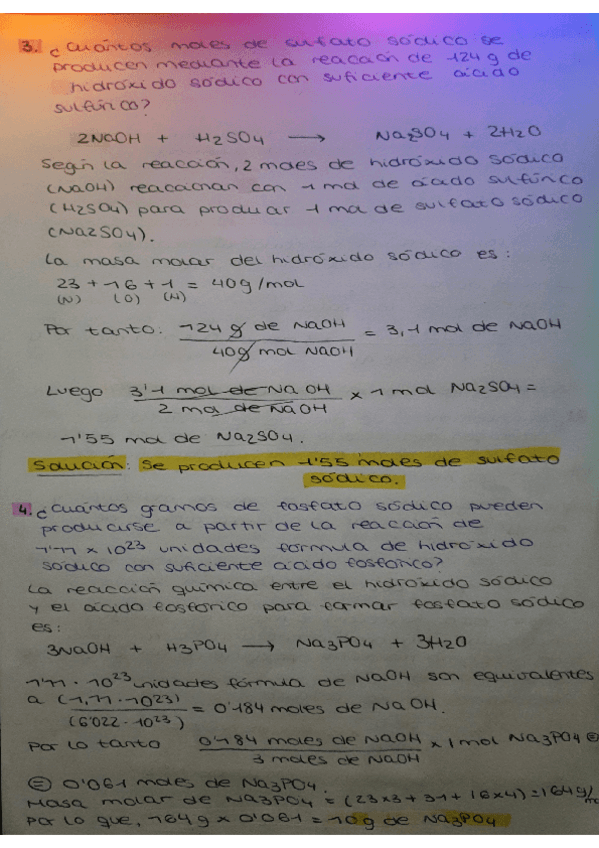 3. ¿Cuántos moles de sulfato sódico se
producen mediante la reacción de 124 g de
hidróxido sódico con suficiente ácido
sulfúrico?
2NaOH + H2SO4 → Na2SO4 + 2H2O
Según la reacción, 2 moles de hidróxido sódico
(NaOH) reaccionan con 1 mol de ácido sulfúrico
(H2SO4) para producir 1 mol de sulfato sódico
(Na2SO4).
La masa molar del hidróxido sódico es:
23 + 16 + 1 = 40g/mol
(N) (O) (H)
Por tanto: 124 g de NaOH = 3,1 mol de NaOH
40g mol NaOH
Luego 3'1 mol de NaOH x 1 mol Na2SO4 =
2 mol de NaOH
1'55 mol de Na2SO4.
Solución: Se producen 1'55 moles de sulfato
sódico.
4. ¿Cuántos gramos de fosfato sódico pueden
producirse a partir de la reacción de
1'11 x 10^23 unidades fórmula de hidróxido
sódico con suficiente ácido fosfórico?
La reacción química entre el hidróxido sódico
y el ácido fosfórico para formar fosfato sódico
es:
3NaOH + H3PO4 → Na3PO4 + 3H2O
1'11 · 10^23 unidades fórmula de NaOH son equivalentes
a (1,11 · 10^23) = 0'184 moles de NaOH.
(6'022 · 10^23)
Por lo tanto 0'184 moles de NaOH x 1 mol Na3PO4 =
3 moles de NaOH
= 0'061 moles de Na3PO4.
Masa molar de Na3PO4 = (23x3 + 31 + 16x4) = 164g/
Por lo que, 164g x 0'061 = 10g de Na3PO4